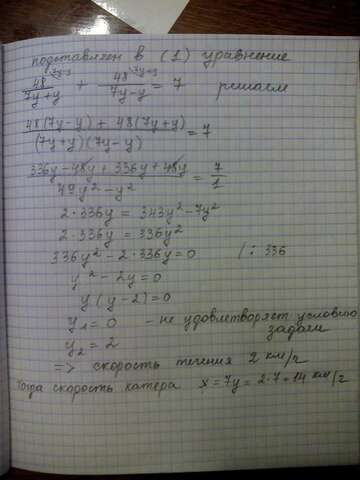 подставляем в (1) уравнение
48/(7y+y) + 48/(7y-y) = 7 решаем
(48(7y-y) + 48(7y+y))/((7y+y)(7y-y)) = 7
(336y-48y+336y+48y)/(49y²-y²) = 7/1
2·336y = 343y²-7y²
2·336y = 336y²
336y²-2·336y=0 /:336
y²-2y=0
y(y-2)=0
y₁=0 - не удовлетворяет условию
задачи
y₂=2
=> скорость течения 2 км/г
Тогда скорость катера x=7y=2·7=14 км/г